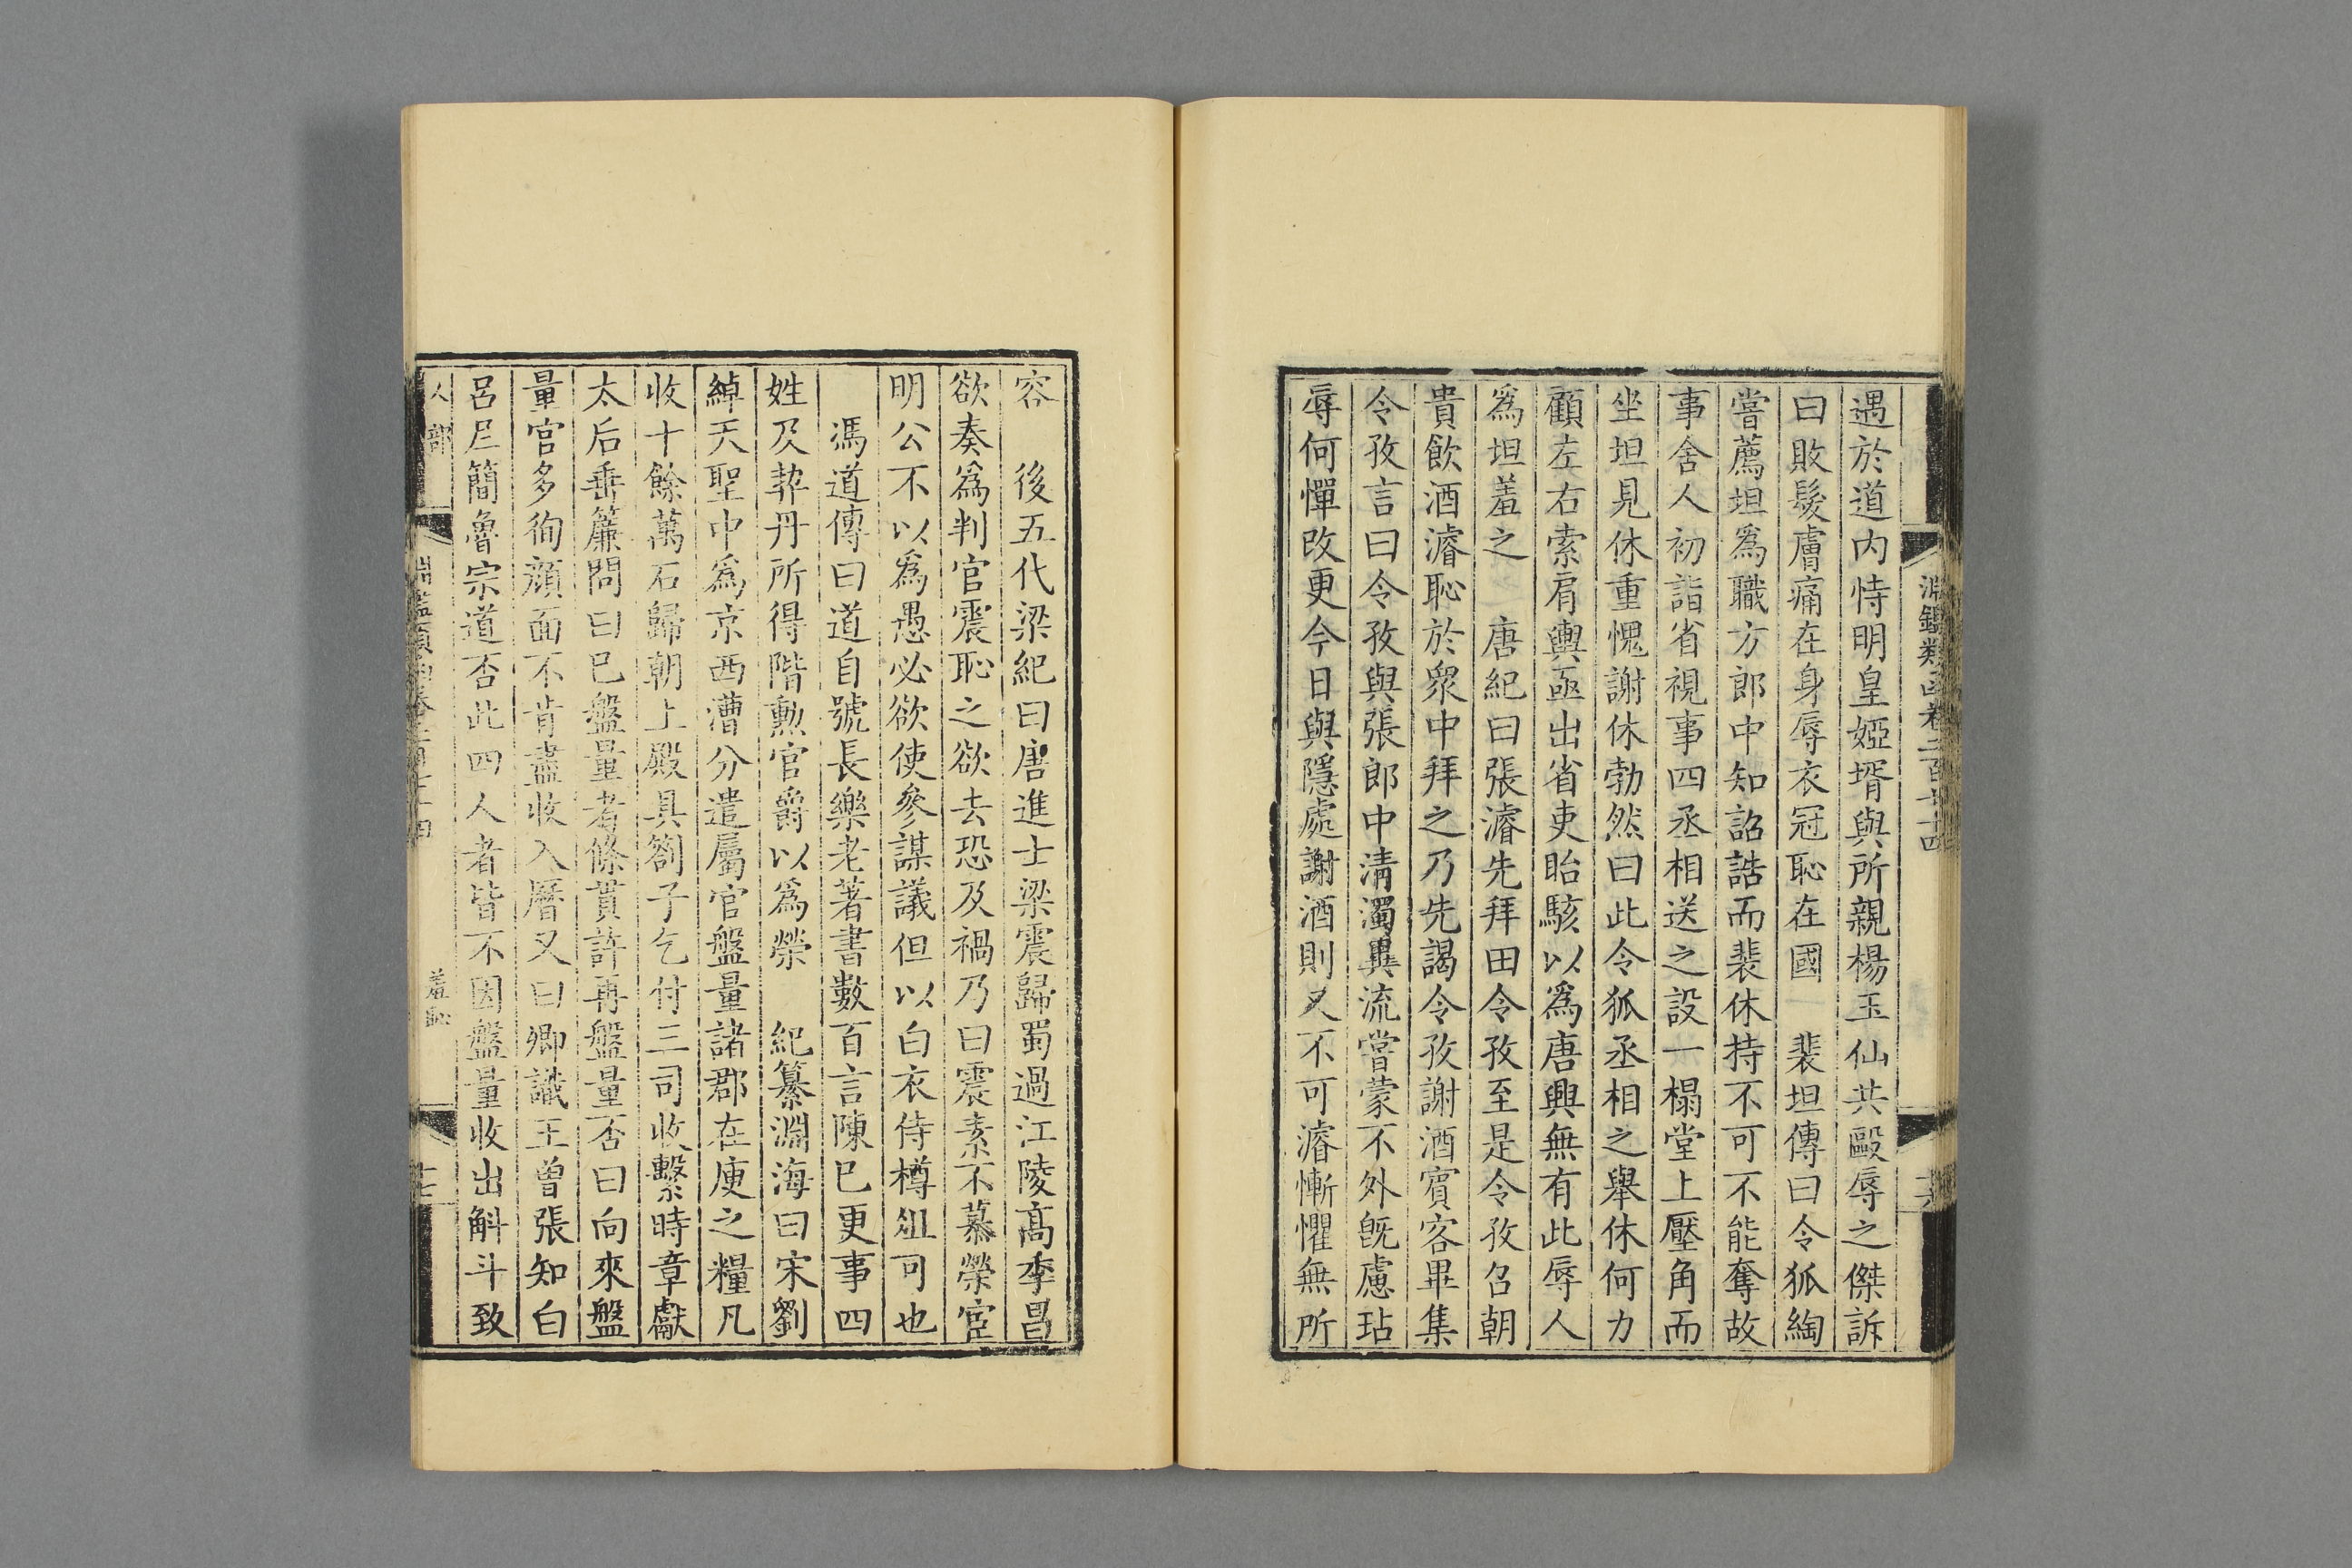 遇於道内恃明皇婭壻與所親楊玉仙共毆辱之傑訴
曰敗髮膚痛在身辱衣冠恥在國　裴坦傳曰令狐綯
嘗薦坦爲職方郎中知詔誥而裴休持不可不能奪故
事舍人初詣省視事四丞相送之設一榻堂上壓角而
坐坦見休重愧謝休勃然曰此令狐丞相之舉休何力
顧左右索肩輿亟出省吏眙駭以爲唐興無有此辱人
爲坦羞之　唐紀曰張濬先拜田令孜至是令孜召朝
貴飲酒濬恥於衆中拜之乃先謁令孜謝酒賓客畢集
令孜言曰令孜與張郎中清濁異流嘗蒙不外旣慮玷
辱何憚改更今日與隱處謝酒則又不可濬慚懼無所
容　後五代梁紀曰唐進士梁震歸蜀過江陵高季昌
欲奏爲判官震恥之欲去恐及禍乃曰震素不慕榮宦
明公不以爲愚必欲使參謀議但以白衣侍樽俎可也
馮道傳曰道自號長樂老著書數百言陳已更事四
姓及契丹所得階勲官爵以爲榮　紀纂淵海曰宋劉
綽天聖中爲京西漕分遣屬官盤量諸郡在庾之糧凡
收十餘萬石歸朝上殿具劄子乞付三司收繫時章獻
太后垂簾問曰已盤量者條貫許再盤量否曰向來盤
量官多徇顔面不肯盡收入曆又曰卿識王曾張知白
呂尼簡魯宗道否此四人者皆不因盤量收出斛斗致
人部
羞恥
十七
淵鑑類函卷三百十四
十六